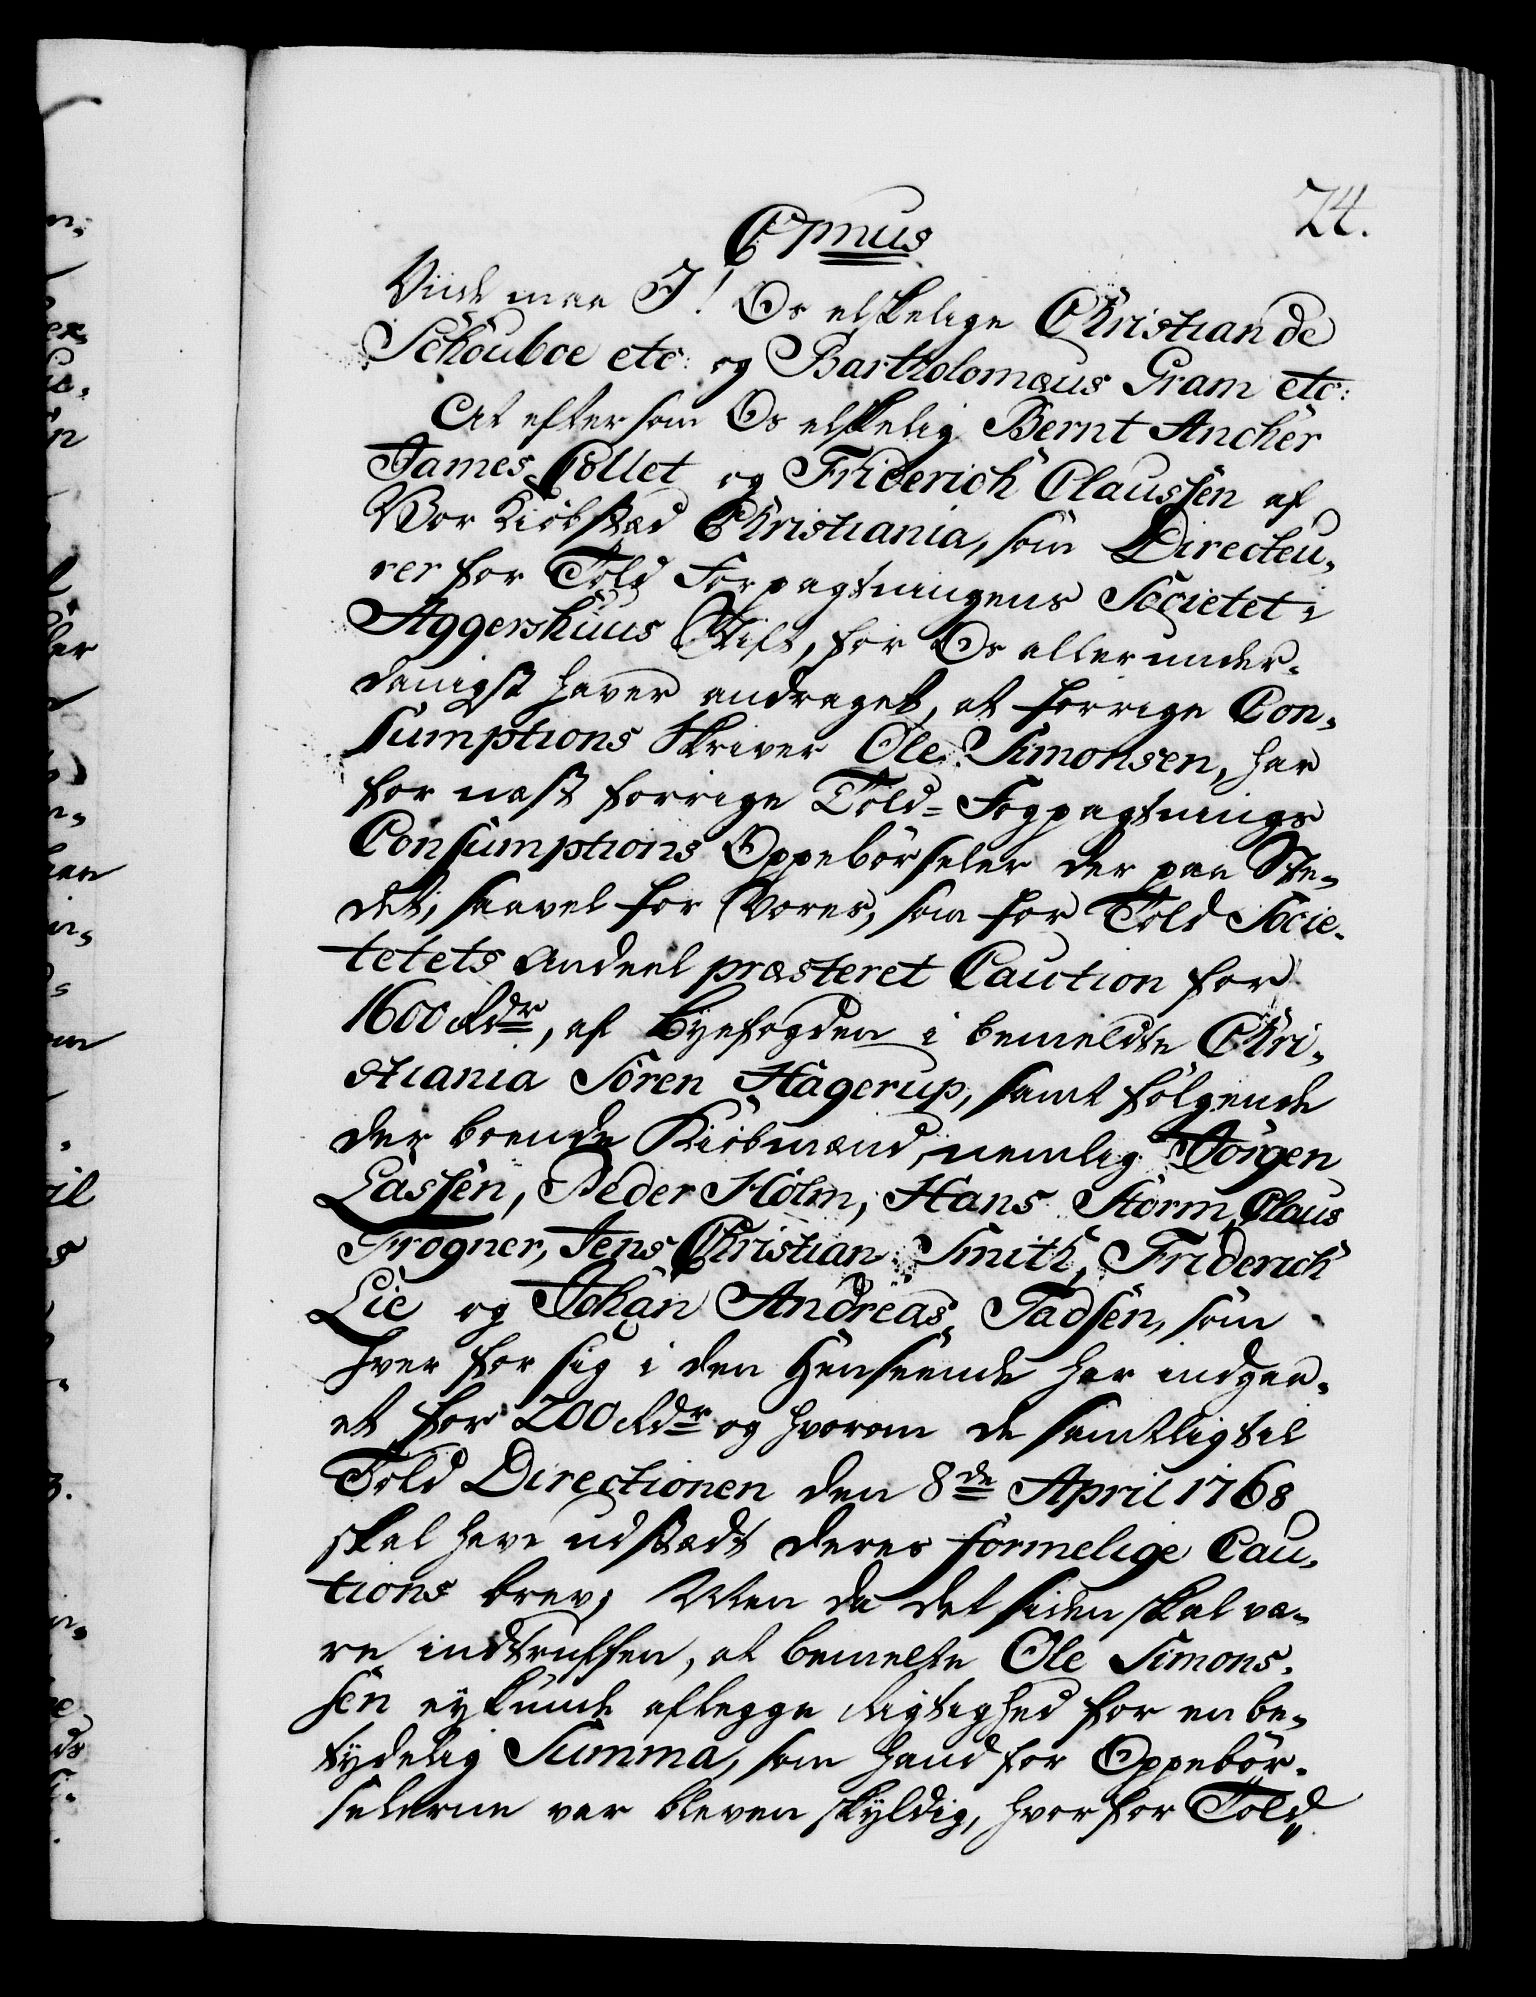 24.
C7mus
Viide maa I! Os elskelige Christian de
Schouboe etc: og Bartholomæus Gram etc:
At eftersom Os elskelig Bernt Ancher
James Collet og Friderich Claussen af
Vor Kiöbstæd Christiania, som Directeu„
rer for Told Forpagtningens Societet i
Aggershuus Stift, for Os allerunder„
danigst haver andraget, at forrige Con„
sumptions Skriver Ole Simonsen, har
for næst forrige Told-Forpagtnings
Consumptions Oppebörseler der paa Ste„
det, saavel for Vores, som for Told Socie„
tetets Andeel præsteret Caution for
1600 Rdr, af Byefogden i bemeldte Chri„
stiania Sören Hagerup, samt fölgende
der boende Kiöbmænd, nemlig Jörgen
Lassen, Peder Holm, Hans Storm, Claus
Frogner, Jens Christian Smith, Friderich
Lie og Johan Andreas Tadsen, som
hver for sig i den Henseende har indgaa„
et for 200 Rdr og hvorom de samtlig til
Told Directionen den 8de April 1768
skal have udstædt deres formelige Cau„
tions brev; Men da det siden skal væ„
re indtruffen, at bemelte Ole Simons„
sen ey kunde aflegge Rigtighed for en be„
tydelig Summa, som hand for Oppebör„
selerne var bleven skyldig, hvorfor Told„